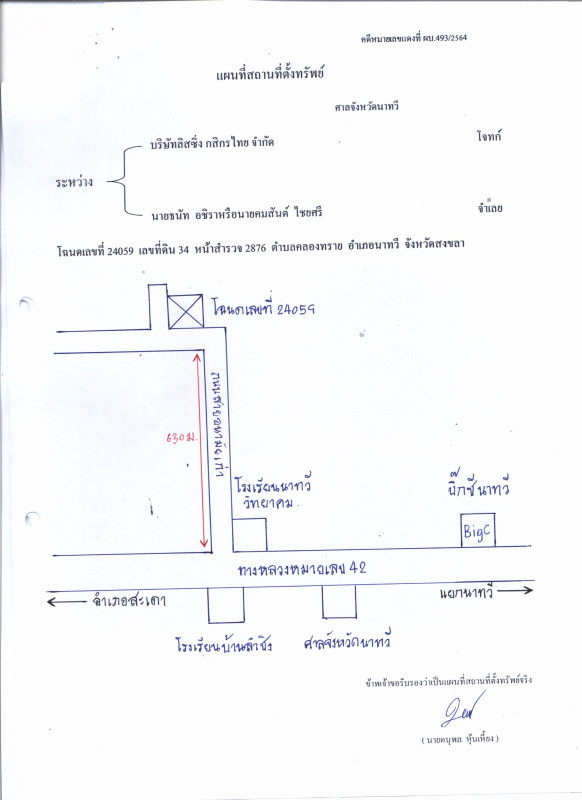 คดีหมายเลขแดงที่ ผบ.493/2564
แผนที่สถานที่ตั้งทรัพย์
ศาลจังหวัดนาทวี
บริษัทลิสซิ่ง กสิกรไทย จำกัด
โจทก์
ระหว่าง
นายธนัท อชิราหรือนายคมสันต์ ไชยศรี
จำเลย
โฉนดเลขที่ 24059 เลขที่ดิน 34 หน้าสำรวจ 2876 ตำบลคลองทราย อำเภอนาทวี จังหวัดสงขลา
โฉนดเลขที่ 24059
630 ม.
โรงเรียนนาทวี
วิทยาคม
บิ๊กซีนาทวี
BigC
ทางหลวงหมายเลข 42
อำเภอสะเดา
แยกนาทวี
โรงเรียนบ้านลำชิง
ศาลจังหวัดนาทวี
ข้าพเจ้าขอรับรองว่าเป็นแผนที่สถานที่ตั้งทรัพย์จริง
( นายดนุพล หุ้นเหี้ยง )